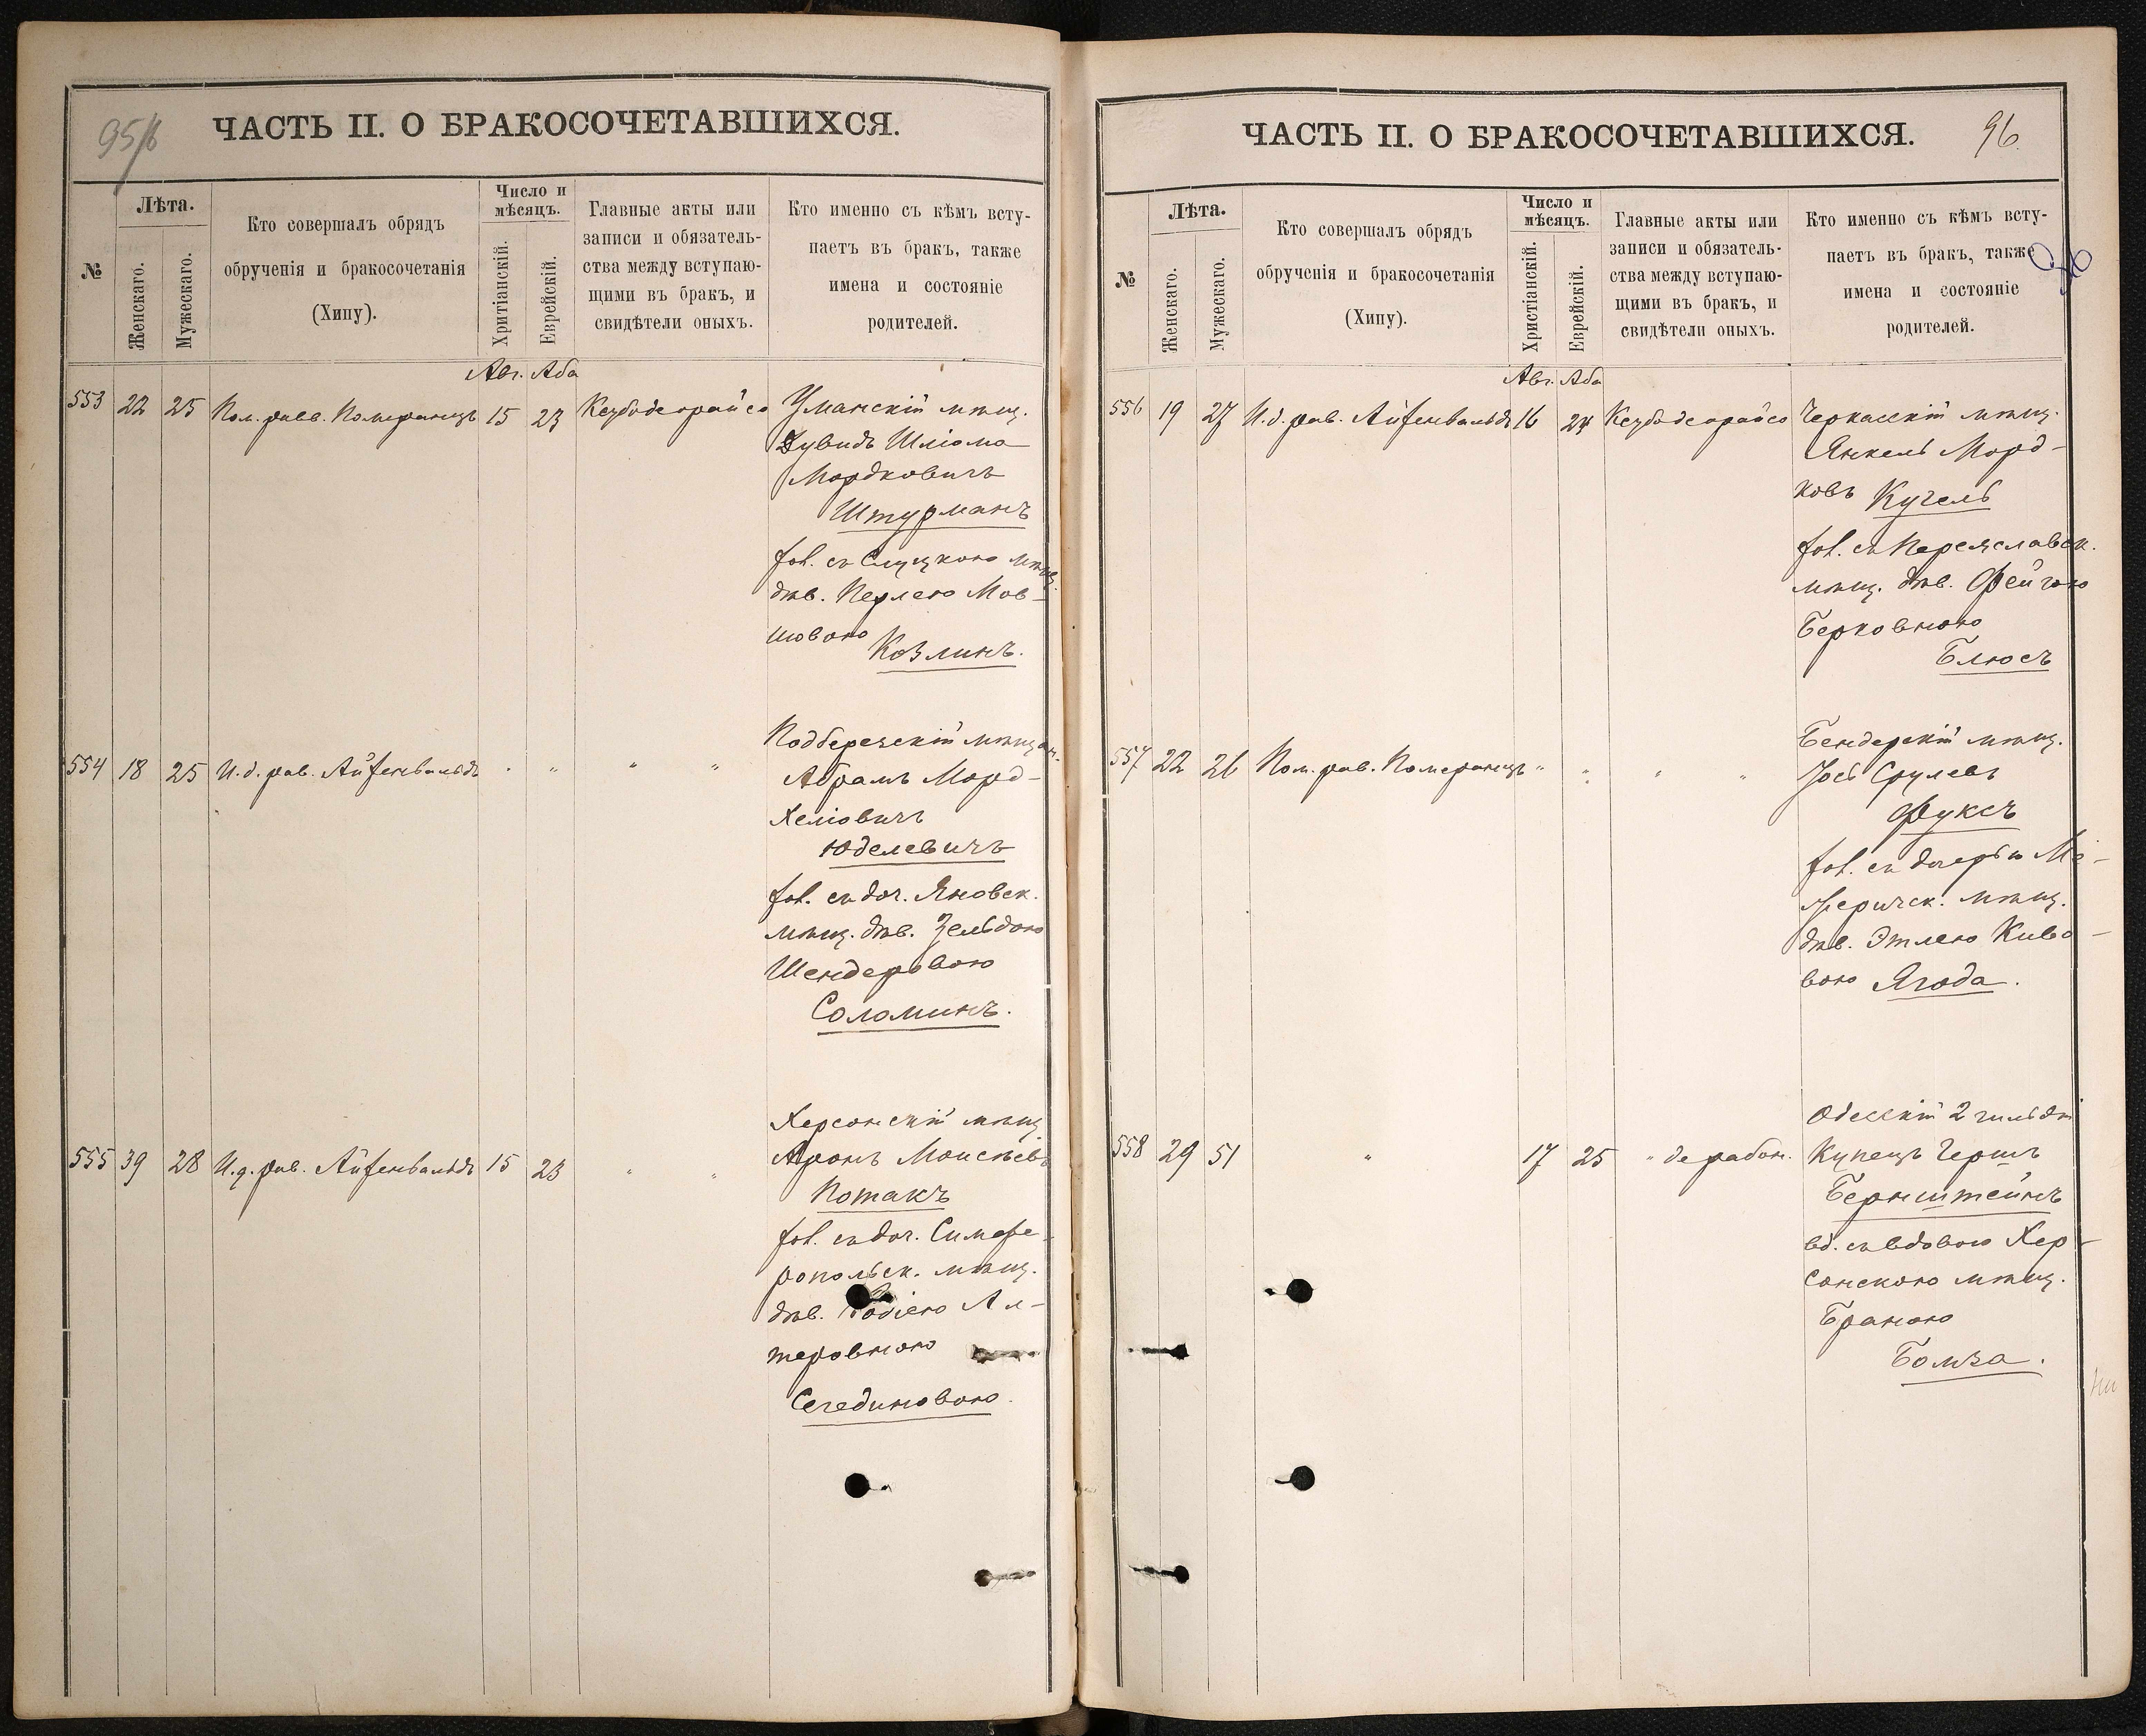 95/б
ЧАСТЬ II. О БРАКОСОЧЕТАВШИХСЯ.
№
Лѣта.
Женскаго.
Мужескаго.
Кто совершалъ обрядъ
обрученія и бракосочетанія
(Хипу).
Число и
мѣсяцъ.
Хритіанскій.
Еврейскій.
Главные акты или
записи и обязатель-
ства между вступаю-
щими въ бракъ, и
свидѣтели оныхъ.
Кто именно съ кѣмъ всту-
паетъ въ бракъ, также
имена и состояніе
родителей.
Авг. Аба
553 22 25 Пом. равв. Померанцъ 15 23 Кезубдеорайсо Уманскій мѣщ.
Дувидъ Шліома
Мордковичъ
Штурманъ
хол. съ Слуцкою мѣщ.
дѣв. Перлею Мов-
шовою
Козлинъ.
554 18 25 И.д. рав. Айзенвальдъ " " " " Подберезскій мѣщан.
Абрамъ Морд-
Хеліовичъ
Юделевичъ
хол. съ доч. Яновск.
мѣщ. дѣв. Зельдою
Шендеровою
Соломинъ.
555 39 28 И.д. рав. Айзенвальдъ 15 23 " " Херсонскій мѣщ.
Аронъ Моисѣевъ
Потакъ
хол. съ доч. Симфе-
ропольск. мѣщ.
дѣв. Ал-
теровною
Сегединовою.
96.
ЧАСТЬ II. О БРАКОСОЧЕТАВШИХСЯ.
№
Лѣта.
Женскаго.
Мужескаго.
Кто совершалъ обрядъ
обрученія и бракосочетанія
(Хипу).
Число и
мѣсяцъ.
Христіанскій.
Еврейскій.
Главные акты или
записи и обязатель-
ства между вступаю-
щими въ бракъ, и
свидѣтели оныхъ.
Кто именно съ кѣмъ всту-
паетъ въ бракъ, также
имена и состояніе
родителей.
96
Авг. Аба
556 19 27 И.д. рав. Айзенвальдъ 16 24 Кезубдеорайсо Черкасскій мѣщ.
Янкель Морд-
ковъ Кугель
хол. съ Переяславск.
мѣщ. дѣв. Фейгою
Берковною
Блюсъ
557 22 26 Пом. рав. Померанцъ " " " " Бендерскій мѣщ.
Іось Срулевъ
Фуксъ
хол. съ дочерью Ме-
жеричск. мѣщ.
дѣв. Этлею Киво-
вою Ягода.
558 29 51 " 17 25 " дерабон. Одесскій 2 гильдіи
Купецъ Гершъ
Бернштейнъ
вд. съ вдовою Хер-
сонскою мѣщ.
Браною
Бомза.